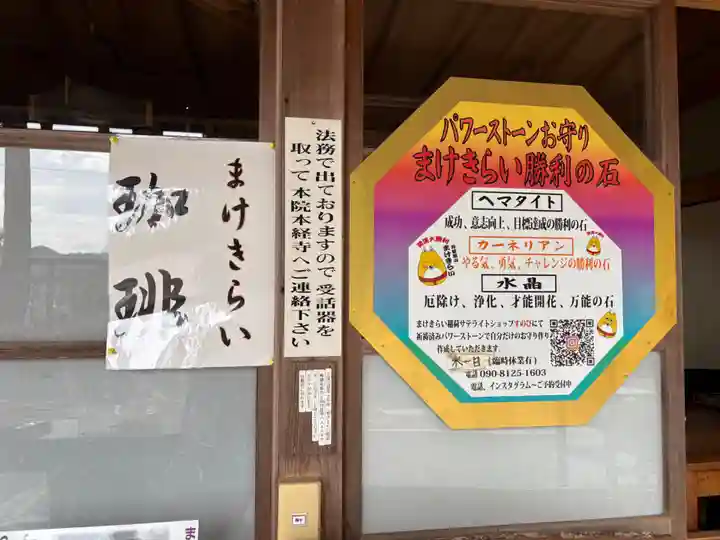 まけきらい
珈琲
法務で出ておりますので受話器を
取って本院本経寺へご連絡下さい
パワーストーンお守り
まけきらい勝利の石
ヘマタイト
成功、意志向上、目標達成の勝利の石
カーネリアン
やる気、勇気、チャレンジの勝利の石
水晶
厄除け、浄化、才能開花、万能の石
まけきらい稲荷サテライトショップすのひにて
祈祷済みパワーストーンで自分だけのお守り作り
作成していただきます。
水〜日(臨時休業有)
電話 090-8125-1603
電話、インスタグラム〜ご予約受付中
まけきらい
ま